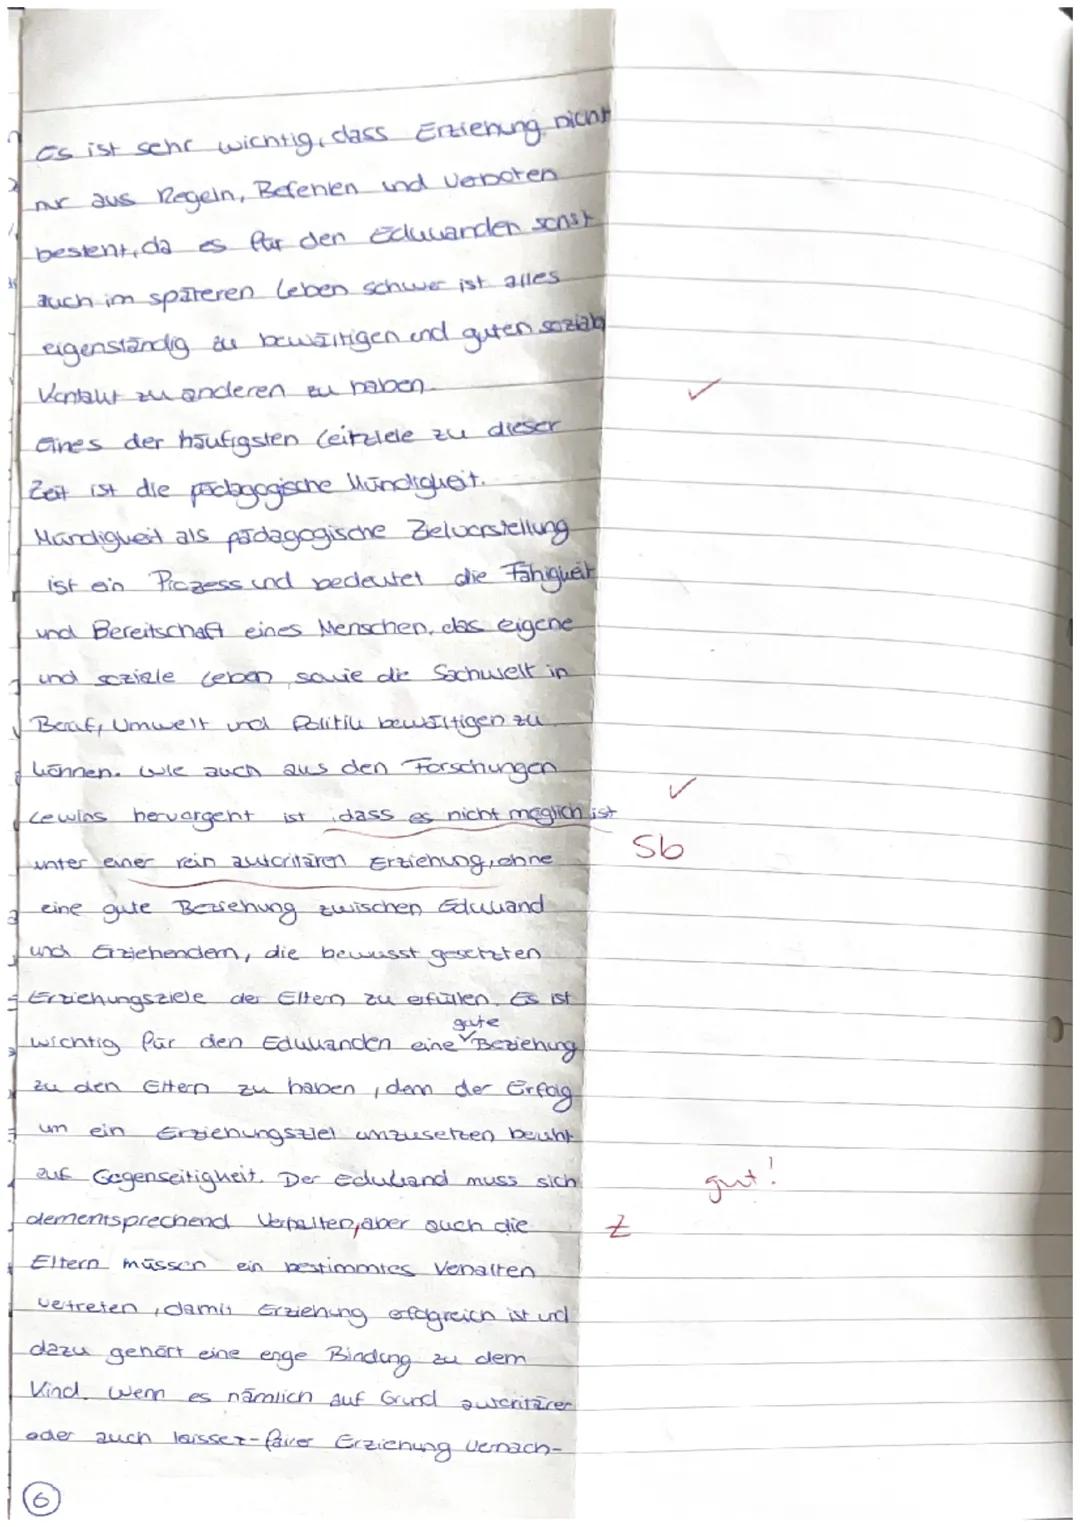 Es ist sehr wichtig, dass Erziehung nicht
nur aus Regeln, Befehlen und Verboten
besteht, da es für den Edukanden sonst
auch im späteren Leben schwer ist alles
eigenständig zu bewältigen und guten sozialen
Kontakt zu anderen zu haben. ✓
Eines der häufigsten Leitziele zu dieser
Zeit ist die pädagogische Mündigkeit.
Mündigkeit als pädagogische Zielvorstellung
ist ein Prozess und bedeutet die Fähigkeit
und Bereitschaft eines Menschen, das eigene
und soziale Leben sowie die Sachwelt in
Beruf, Umwelt und Politik bewältigen zu
können. Wie auch aus den Forschungen ✓
Lewins hervorgeht ist, dass es nicht möglich ist
unter einer rein autoritären Erziehung, ohne Sb
eine gute Beziehung zwischen Edukand
und Erziehendem, die bewusst gesetzten
Erziehungsziele der Eltern zu erfüllen. Es ist
wichtig für den Edukanden eine gute Beziehung
zu den Eltern zu haben, denn der Erfolg
um ein Erziehungsziel umzusetzen beruht
auf Gegenseitigkeit. Der Edukand muss sich gut!
dementsprechend Verhalten, aber auch die Z
Eltern müssen ein bestimmtes Verhalten
vetreten, damit Erziehung erfolgreich ist und
dazu gehört eine enge Bindung zu dem
Kind. Wenn es nämlich auf Grund autoritärer
oder auch laissez-fairer Erziehung Vernach-
6